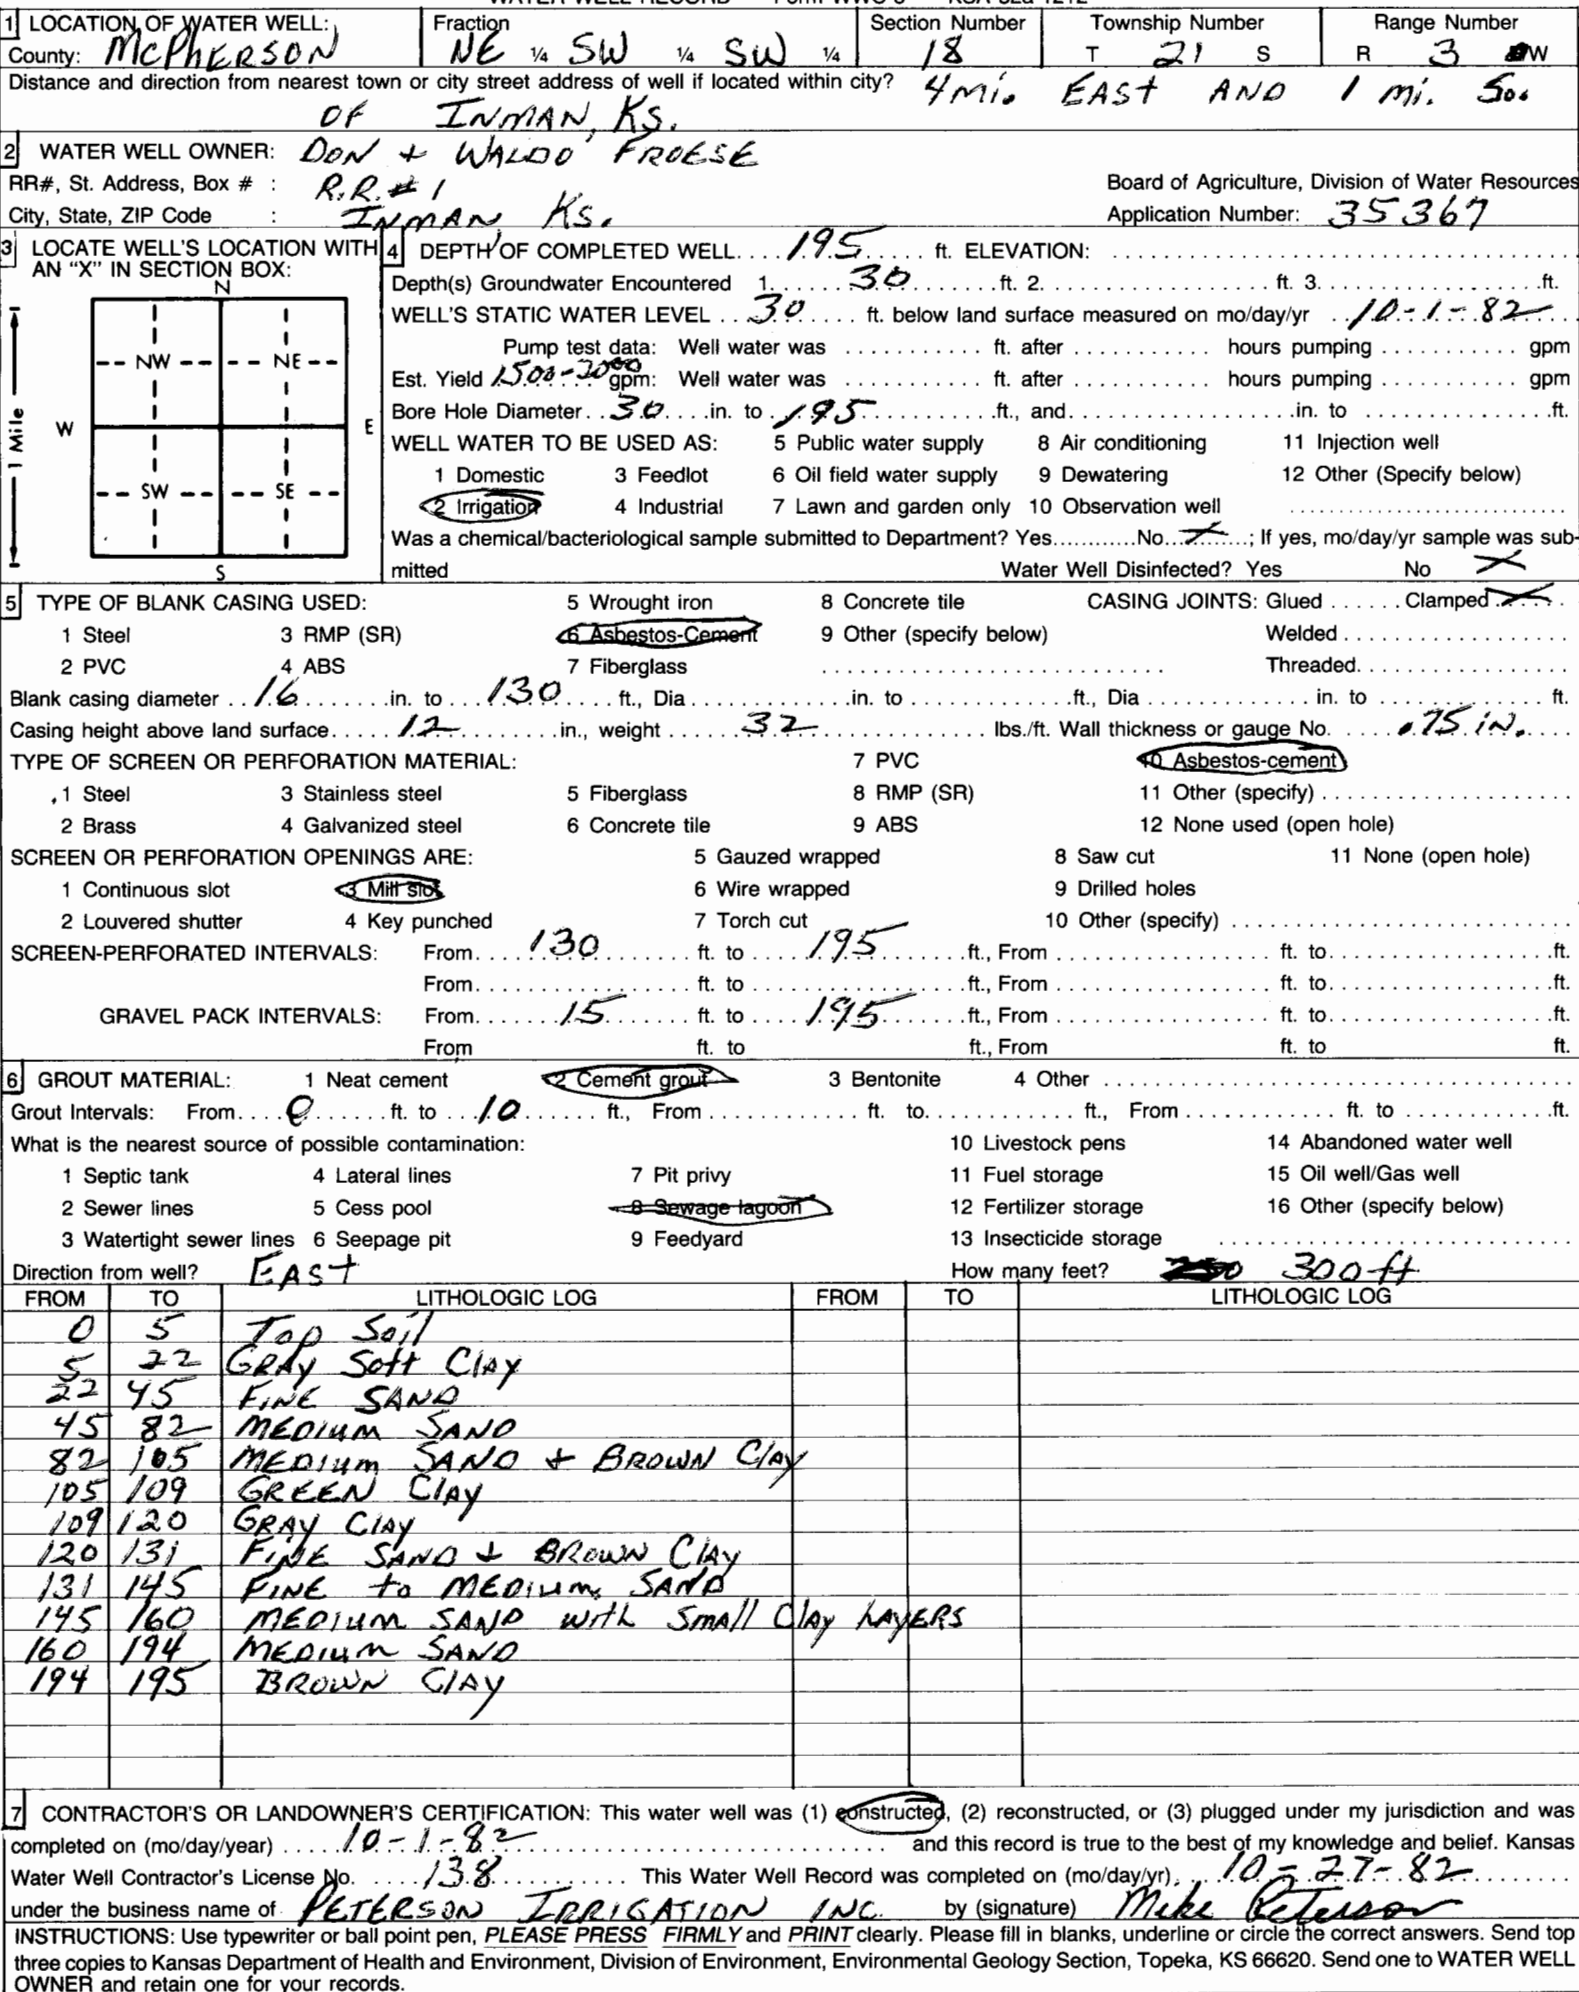 WATER WELL RECORD Form WWC-5 KSA 82a-1212
1 LOCATION OF WATER WELL: Fraction Section Number Township Number Range Number
County: McPHERSON NE ¼ SW ¼ SW ¼ 18 T 21 S R 3 W
Distance and direction from nearest town or city street address of well if located within city? 4 mi. EAST AND 1 mi. So.
OF INMAN, Ks.
2 WATER WELL OWNER: DON + WALDO FROESE
RR#, St. Address, Box # : R.R.#1 Board of Agriculture, Division of Water Resources
City, State, ZIP Code : INMAN Ks. Application Number: 35367
3 LOCATE WELL'S LOCATION WITH AN "X" IN SECTION BOX:
N
NW NE
W E
SW SE
S
1 Mile
4 DEPTH OF COMPLETED WELL.... 195 ..... ft. ELEVATION: ..........
Depth(s) Groundwater Encountered 1. 30 ft. 2. ft. 3. ft.
WELL'S STATIC WATER LEVEL .. 30 ..... ft. below land surface measured on mo/day/yr 10-1-82
Pump test data: Well water was .......... ft. after .......... hours pumping .......... gpm
Est. Yield 1500-2000 gpm: Well water was .......... ft. after .......... hours pumping .......... gpm
Bore Hole Diameter.. 30 ....in. to 195 ..........ft., and..........in. to ..........ft.
WELL WATER TO BE USED AS: 5 Public water supply 8 Air conditioning 11 Injection well
1 Domestic 3 Feedlot 6 Oil field water supply 9 Dewatering 12 Other (Specify below)
2 Irrigation 4 Industrial 7 Lawn and garden only 10 Observation well ..........
Was a chemical/bacteriological sample submitted to Department? Yes..........No... X ....; If yes, mo/day/yr sample was sub-
mitted Water Well Disinfected? Yes No X
5 TYPE OF BLANK CASING USED: 5 Wrought iron 8 Concrete tile CASING JOINTS: Glued ...... Clamped X
1 Steel 3 RMP (SR) 6 Asbestos-Cement 9 Other (specify below) Welded ..........
2 PVC 4 ABS 7 Fiberglass .......... Threaded..........
Blank casing diameter .. 16 ....in. to ... 130 .... ft., Dia ..........in. to ..........ft., Dia ..........in. to ..........ft.
Casing height above land surface..... 12 ..........in., weight ...... 32 .......... lbs./ft. Wall thickness or gauge No. .75 in.
TYPE OF SCREEN OR PERFORATION MATERIAL: 7 PVC 10 Asbestos-cement
1 Steel 3 Stainless steel 5 Fiberglass 8 RMP (SR) 11 Other (specify) ..........
2 Brass 4 Galvanized steel 6 Concrete tile 9 ABS 12 None used (open hole)
SCREEN OR PERFORATION OPENINGS ARE: 5 Gauzed wrapped 8 Saw cut 11 None (open hole)
1 Continuous slot 3 Mill slot 6 Wire wrapped 9 Drilled holes
2 Louvered shutter 4 Key punched 7 Torch cut 10 Other (specify) ..........
SCREEN-PERFORATED INTERVALS: From.... 130 ....... ft. to .... 195 .......ft., From .......... ft. to..........ft.
From.......... ft. to ..........ft., From .......... ft. to..........ft.
GRAVEL PACK INTERVALS: From....... 15 ....... ft. to .... 195 .......ft., From .......... ft. to..........ft.
From ft. to ft., From ft. to ft.
6 GROUT MATERIAL: 1 Neat cement 2 Cement grout 3 Bentonite 4 Other ..........
Grout Intervals: From.... 0 ......ft. to ... 10 ...... ft., From .......... ft. to.......... ft., From .......... ft. to ..........ft.
What is the nearest source of possible contamination: 10 Livestock pens 14 Abandoned water well
1 Septic tank 4 Lateral lines 7 Pit privy 11 Fuel storage 15 Oil well/Gas well
2 Sewer lines 5 Cess pool 8 Sewage lagoon 12 Fertilizer storage 16 Other (specify below)
3 Watertight sewer lines 6 Seepage pit 9 Feedyard 13 Insecticide storage ..........
Direction from well? EAST How many feet? 300 ft
FROM TO LITHOLOGIC LOG FROM TO LITHOLOGIC LOG
0 5 Top Soil
5 22 GRAY Soft Clay
22 45 FINE SAND
45 82 MEDIUM SAND
82 105 MEDIUM SAND + BROWN Clay
105 109 GREEN Clay
109 120 GRAY Clay
120 131 FINE SAND + BROWN Clay
131 145 FINE to MEDIUM SAND
145 160 MEDIUM SAND with Small Clay LAYERS
160 194 MEDIUM SAND
194 195 BROWN Clay
7 CONTRACTOR'S OR LANDOWNER'S CERTIFICATION: This water well was (1) constructed, (2) reconstructed, or (3) plugged under my jurisdiction and was
completed on (mo/day/year) ..... 10-1-82 .......... and this record is true to the best of my knowledge and belief. Kansas
Water Well Contractor's License No. .... 138 .......... This Water Well Record was completed on (mo/day/yr) .. 10-27-82 ..........
under the business name of PETERSON IRRIGATION INC. by (signature) Mike Peterson
INSTRUCTIONS: Use typewriter or ball point pen, PLEASE PRESS FIRMLY and PRINT clearly. Please fill in blanks, underline or circle the correct answers. Send top
three copies to Kansas Department of Health and Environment, Division of Environment, Environmental Geology Section, Topeka, KS 66620. Send one to WATER WELL
OWNER and retain one for your records.